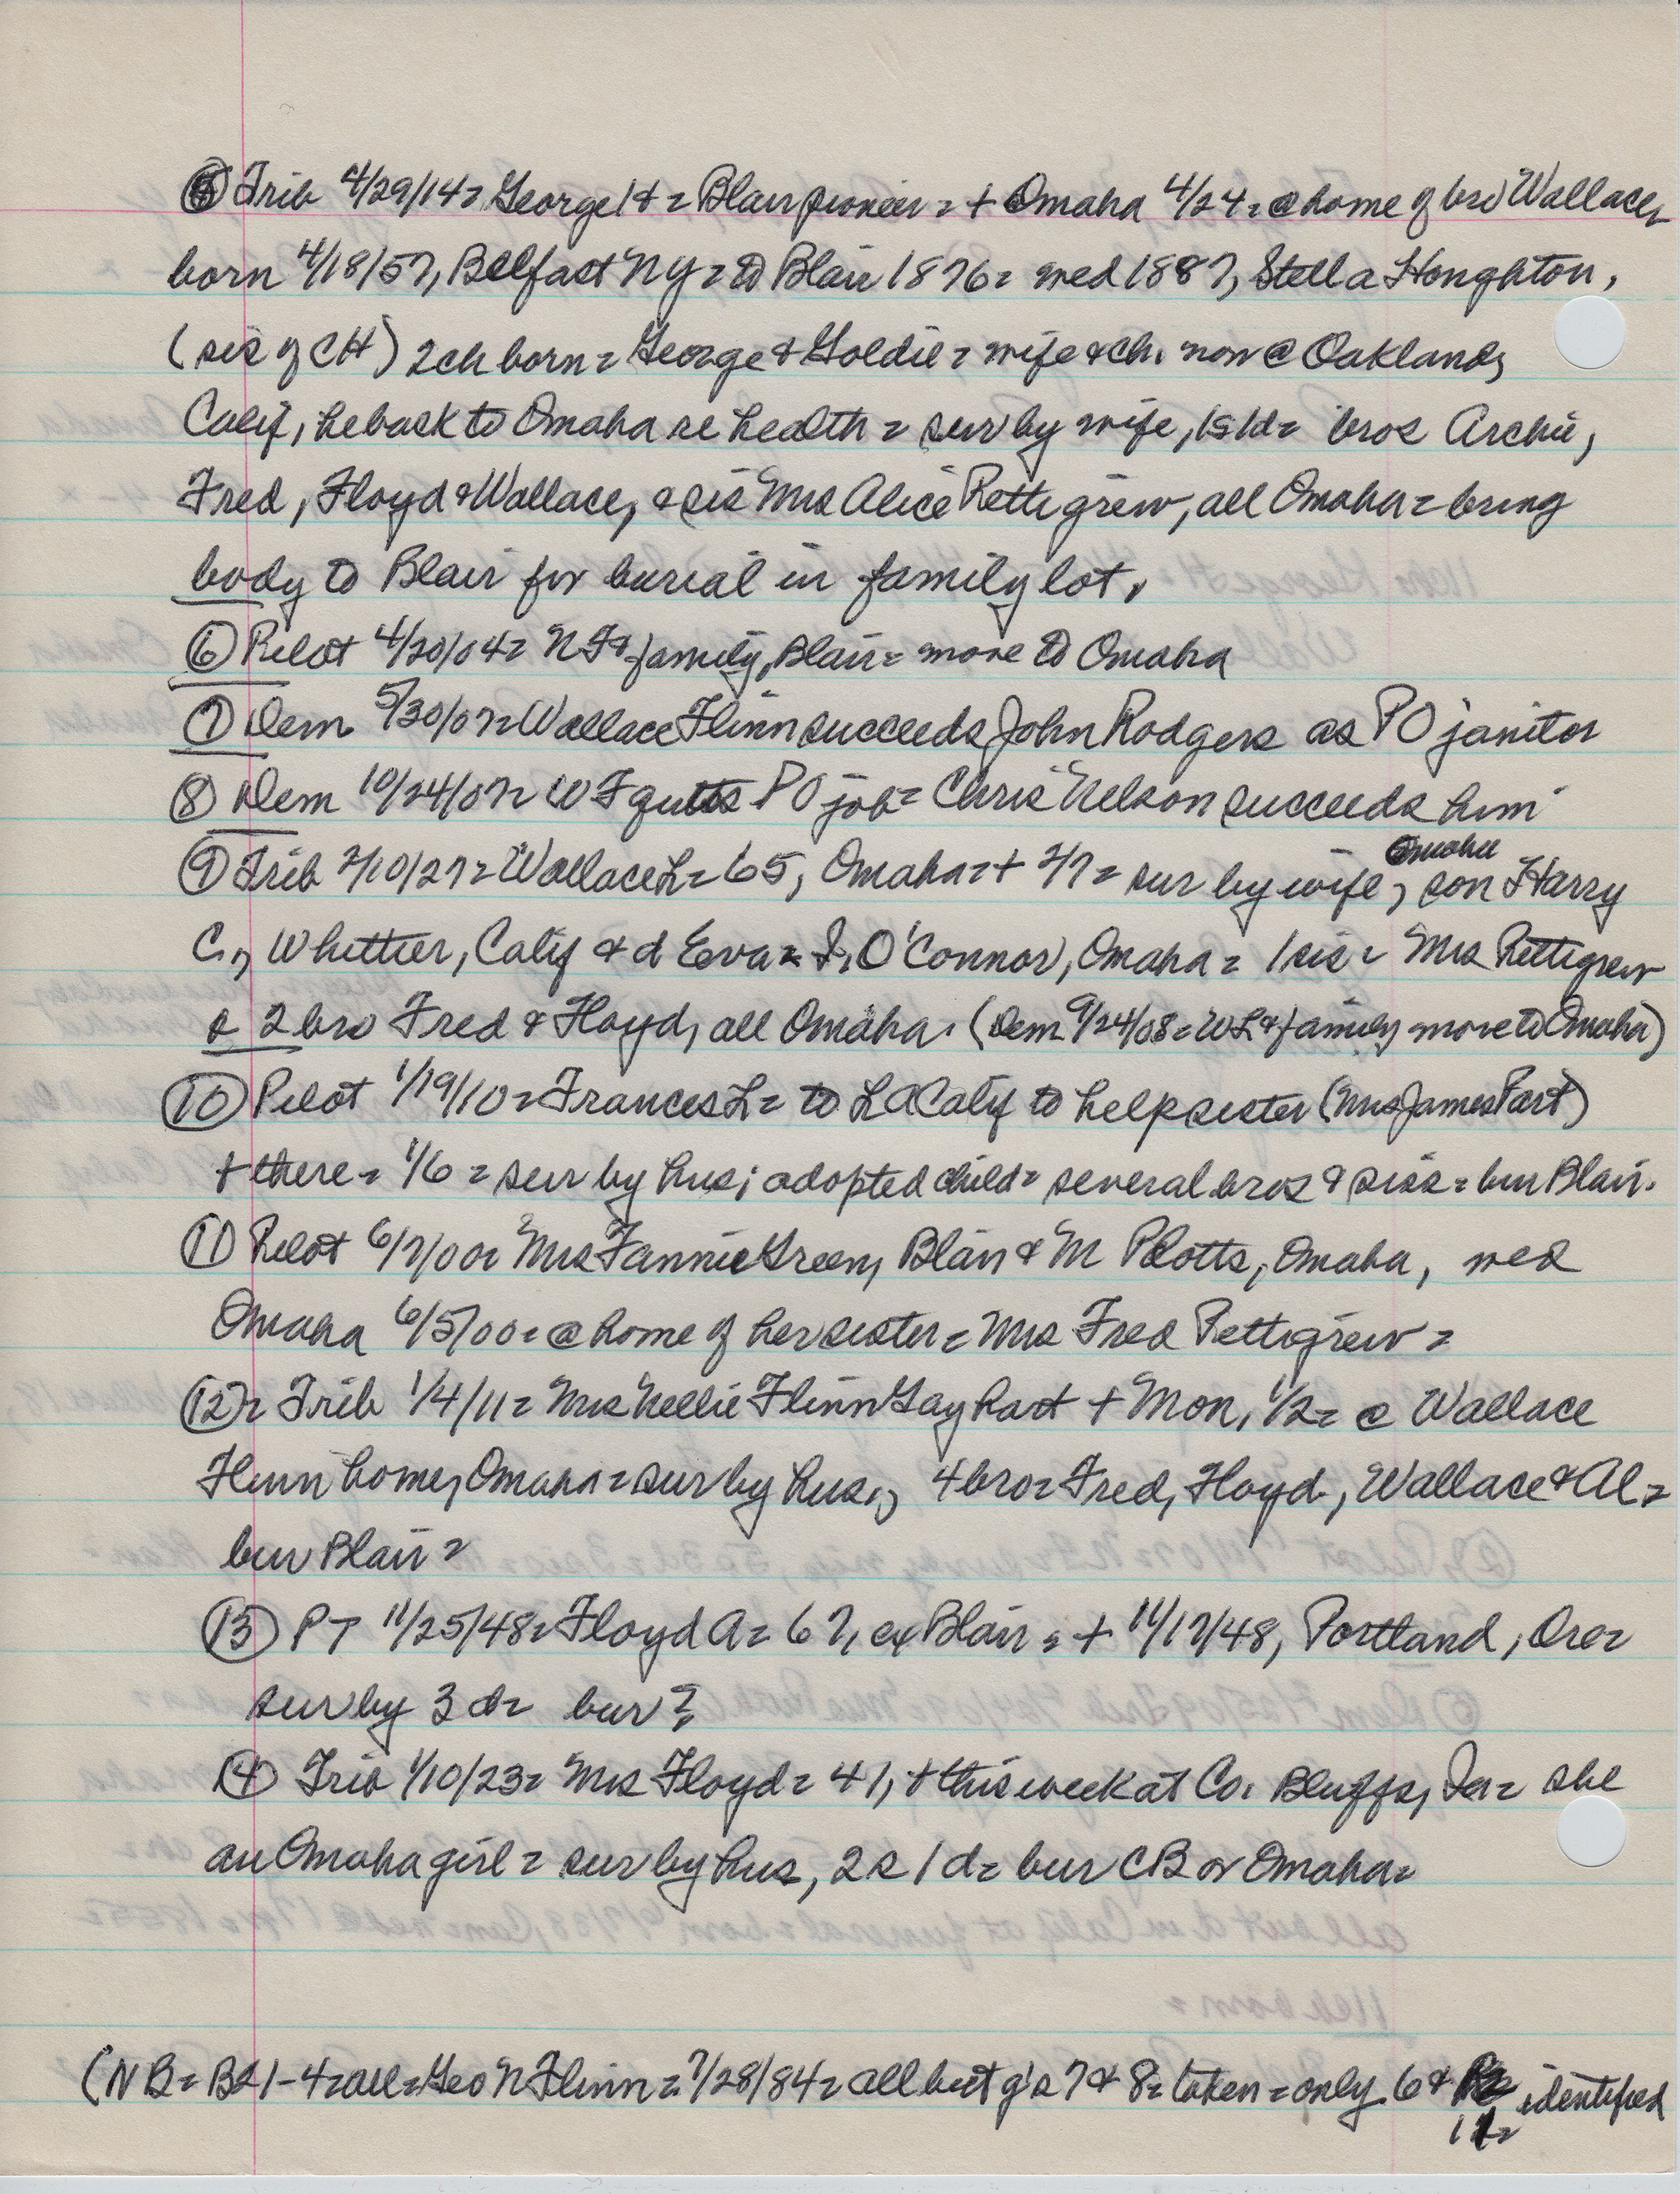 ⑤ Trib 4/29/14= George H= Blair pioneer = + Omaha 4/24= @ home of bro Wallace,
born 4/18/57, Belfast NY= to Blair 1876= wed 1887, Stella Houghton,
(sis of CH) 2ch born = George & Goldie = wife & ch. now @ Oakland,
Calif, he back to Omaha re health = sur by wife, 1s 1d= bros Archie,
Fred, Floyd & Wallace, & sis Mrs Alice Pettigrew, all Omaha = bring
body to Blair for burial in family lot.
⑥ Pilot 4/20/04= N F & family, Blair= move to Omaha
⑦ Dem 5/30/07= Wallace Flinn succeeds John Rodgers as PO janitor
⑧ Dem 10/24/07= W F quits PO job= Chris Nelson succeeds him
Omaha
⑨ Trib 2/10/27= Wallace L= 65, Omaha= + 2/7= sur by wife, son Harry
C., Whittier, Calif & d Eva = J. O'Connor, Omaha = 1 sis = Mrs Pettigrew
& 2 bro Fred & Floyd, all Omaha. (Dem 9/24/08= WL & family move to Omaha)
⑩ Pilot 1/19/10= Frances L= to LA Calif to help sister (Mrs James Part)
+ there = 1/6 = sur by hus; adopted child= several bros & siss = bur Blair.
⑪ Pilot 6/7/00= Mrs Fannie Green, Blair & M Plotts, Omaha, wed
Omaha 6/5/00= @ home of her sister = Mrs Fred Pettigrew =
⑫= Trib 1/4/11= Mrs Nellie Flinn Gayhart + Mon, 1/2= @ Wallace
Flinn home, Omaha = sur by hus., 4 bro= Fred, Floyd, Wallace & Al=
bur Blair =
⑬ PT 11/25/48= Floyd A= 67, ex Blair = + 11/17/48, Portland, Ore=
sur by 3 d= bur?
⑭ Trib 1/10/23= Mrs Floyd= 41, + this week at Co. Bluffs, Ia= she
an Omaha girl = sur by hus, 2s 1d= bur CB or Omaha=
(NB= BS 1-4= all= Geo N Flinn = 7/28/84= all but g's 7 & 8= taken = only 6 & identified
12=